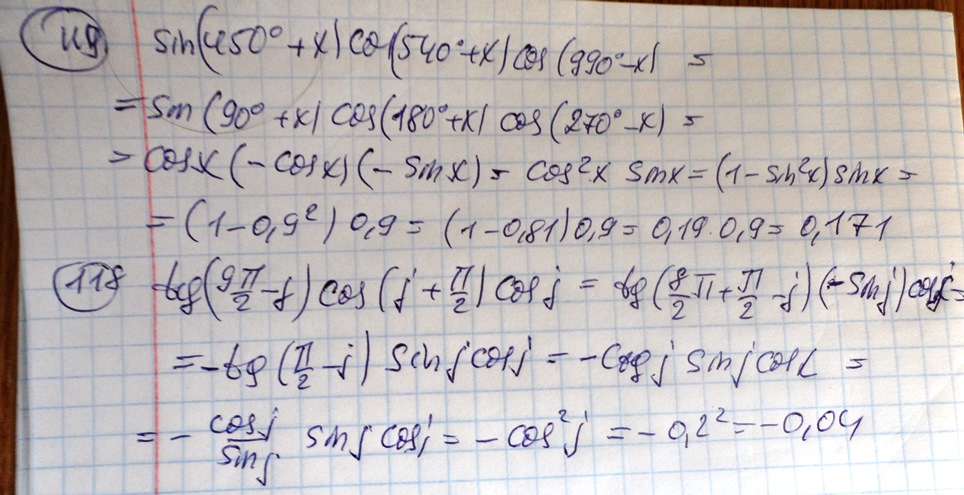 119 sin(450°+x) cos(540°+x) cos(990°-x) =
= sin(90°+x) cos(180°+x) cos(270°-x) =
= cosx(-cosx)(-sinx) = cos²x sinx = (1-sin²x)sinx =
= (1-0,9²) 0,9 = (1-0,81)0,9 = 0,19·0,9 = 0,171
118 tg(9π/2-j) cos(j+π/2) cosj = tg(8/2π+π/2-j)(-sinj)cosj =
= -tg(π/2-j) sinjcosj = -ctgj sinjcosx =
= - cosj/sinj sinj cosj = -cos²j = -0,2² = -0,04